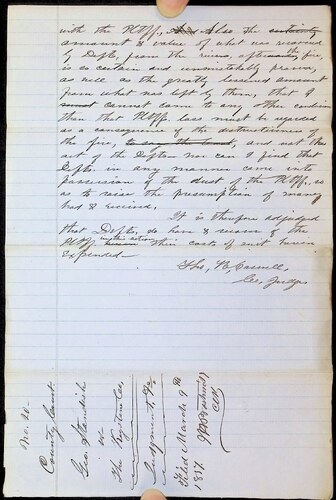 with the Plff., Also the certainty
amount & value of what was received
by Defts. from the ruins, after the fire,
is so certain and unmistakably shown,
as well as the greatly lessened amount
from what was left by them, that I
cannot come to any other conclusion
then that Plffs. loss must be regarded
as a consequence of the destructiveness of
the fire, and not the
act of the Defts. nor can I find that
Defts. in any manner came into
possession of the dust of the Plff. so
as to raise the presumption of money
had & received.
It is therefore adjudged
that Defts, do have & recover of the
Plff. in this action their costs of suit herein
expended
Co. Judge
No. 20.
County Court.
Geo. Standish
vs
Judgment &c
Filed March 9th
1871
Clk